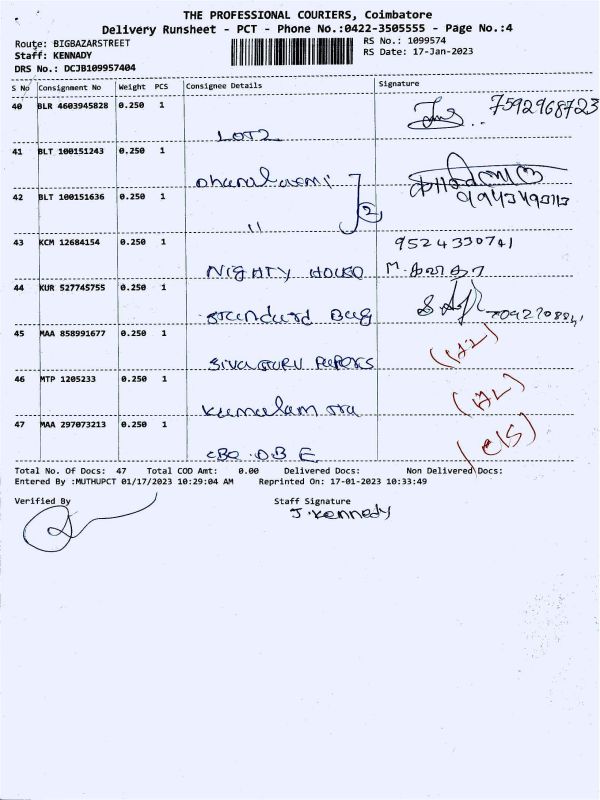 THE PROFESSIONAL COURIERS, Coimbatore
Delivery Runsheet - PCT - Phone No.:0422-3505555 - Page No.:4
Route: BIGBAZARSTREET
RS No.: 1099574
Staff: KENNADY
RS Date: 17-Jan-2023
DRS No.: DCJB109957404
S No Consignment No Weight PCS Consignee Details Signature
40 BLR 4603945828 0.250 1 7592968723
LOT2
41 BLT 100151243 0.250 1
Dhanalaxmi
42 BLT 100151636 0.250 1 2
"
43 KCM 12684154 0.250 1 9524330741
NIGHTY HOUSE M.
44 KUR 527745755 0.250 1
Standard Bag
45 MAA 858991677 0.250 1
SIVA GURU PAPERS
46 MTP 1205233 0.250 1
47 MAA 297073213 0.250 1
Total No. Of Docs: 47 Total COD Amt: 0.00 Delivered Docs: Non Delivered Docs:
Entered By :MUTHUPCT 01/17/2023 10:29:04 AM Reprinted On: 17-01-2023 10:33:49
Verified By Staff Signature
J. Kennedy